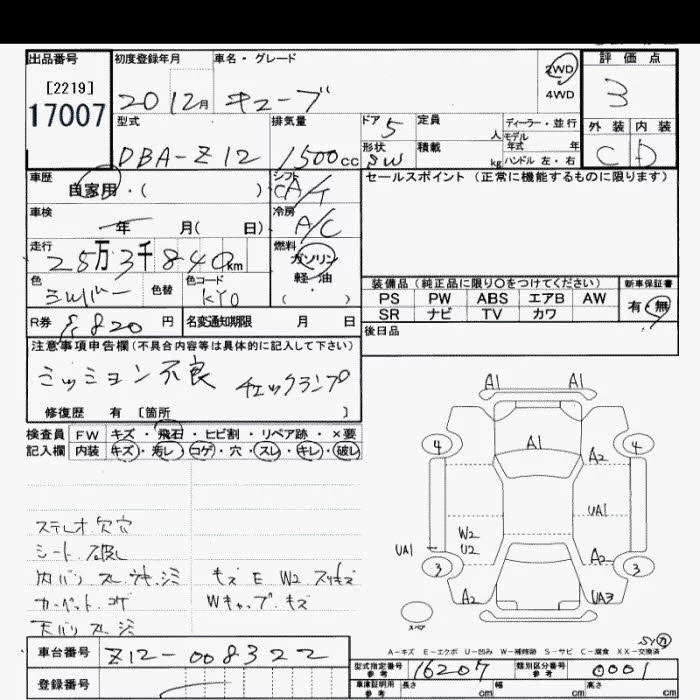 出品番号 初度登録年月 車名・グレード 2WD 4WD 評価点
[2219]
17007
20 12月 キューブ 3
型式 排気量 ドア 5 定員 人 ディーラー・並行 外装 内装
モデル年式 年
DBA-Z12 1500cc 形状 SW 積載 kg ハンドル 左・右 C D
車歴 シフト セールスポイント(正常に機能するものに限ります)
自家用・( ) CA/T
車検 冷房
年 月( 日) A/C
走行 燃料
25万3千840km ガソリン
色 色替 色コード 軽・油
シルバー KY0 ( )
装備品(純正品に限り○をつけてください) 新車保証書
PS PW ABS エアB AW 有・無
SR ナビ TV カワ
R券 8,820円 名変通知期限 月 日
後日品
注意事項申告欄(不具合内容等は具体的に記入して下さい)
ミッション不良 チェックランプ
修復歴 有 [箇所 ]
検査員 FW キズ・飛石・ヒビ割・リペア跡・×要
記入欄 内装 キズ・汚レ・コゲ・穴・スレ・キレ・破レ
A1 A1
4 A1 4
A2
UA1
W2
UA1 U2 A2
3 3
A2 UA3
スペア
ステレオ欠穴
シート 破レ
内バリ スレ キキ シミ キズ E W2 スリキズ
カーペット コゲ Wキャップ キズ
天バリ スレ シミ
A-キズ E-エクボ U-凹み W-補修跡 S-サビ C-腐食 XX-交換済
車台番号 Z12-008322
型式指定番号 参考 16207 類別区分番号 参考 0001
登録番号
車庫証明用 参考 長さ cm 幅 cm 高さ cm